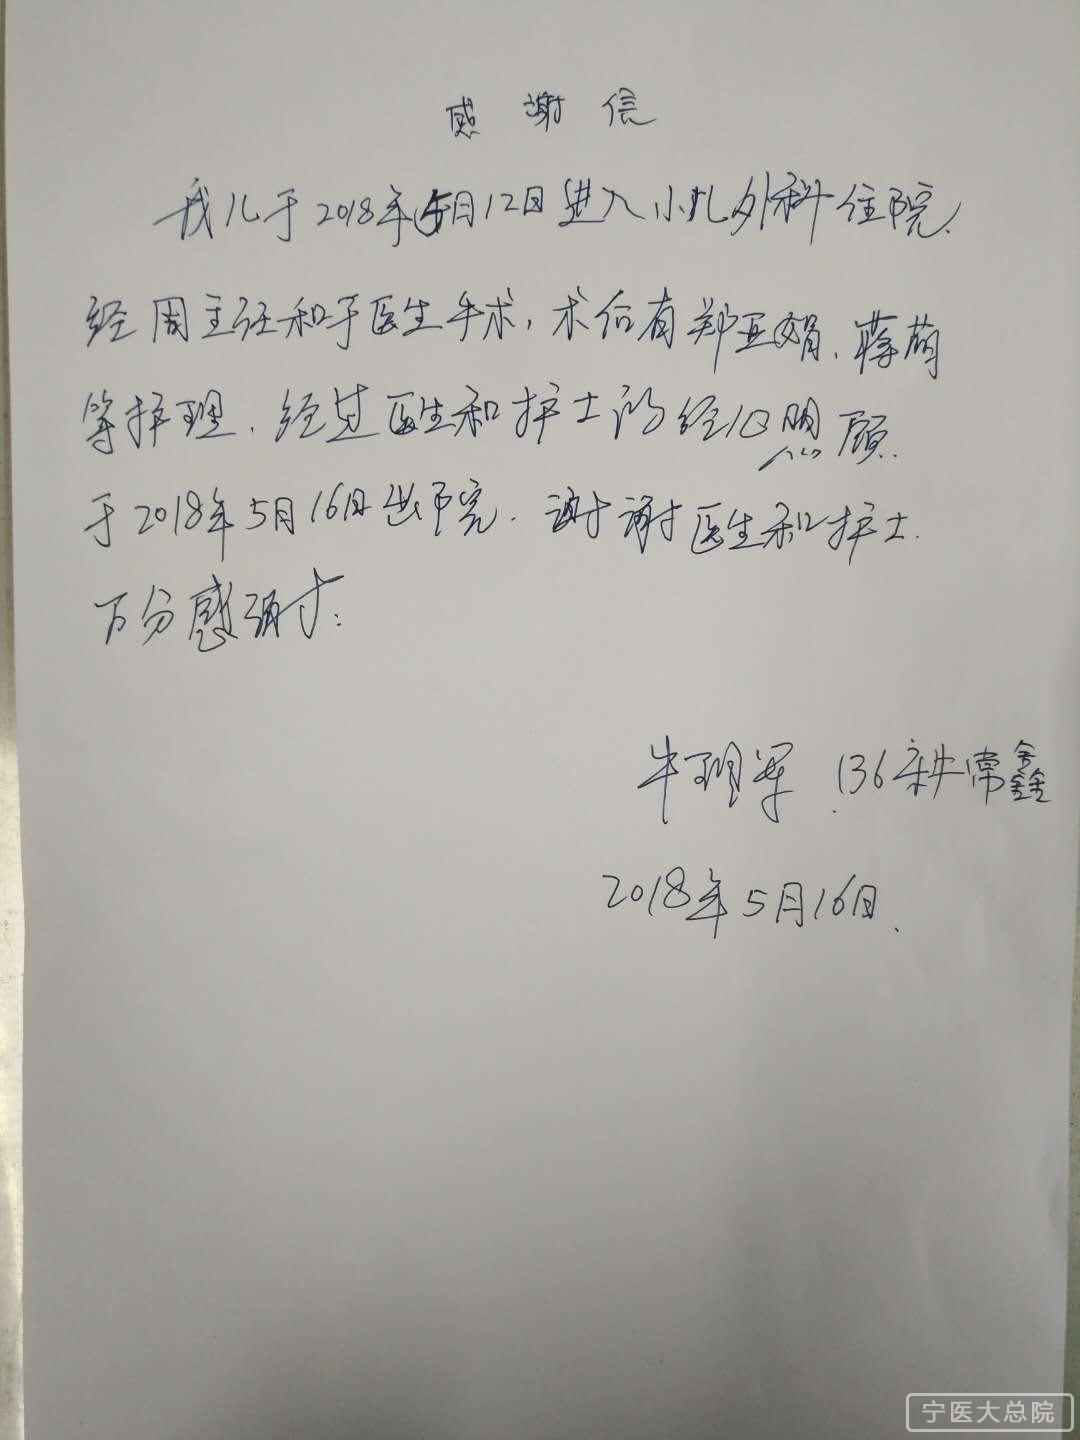 感谢信
我儿于2018年5月12日进入小儿外科住院.
经周主任和于医生手术,术后有郑亚娟、蒋萌
等护理.经过医生和护士的经心照顾.
于2018年5月16日出院.谢谢医生和护士.
万分感谢:
牛理军 136床牛常鑫
2018年5月16日.
宁医大总院